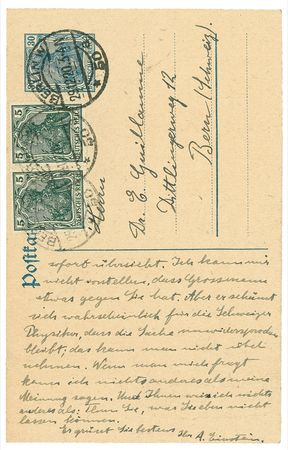 Postkarte
30
5
5
DEUTSCHES REICH
DEUTSCHES REICH
BERLIN
Herrn
Dr. E. Guillaume
Dittlingerweg 12
Bern (Schweiz).
sofort übersieht. Ich kann mir
nicht vorstellen, dass Grossmann
etwas gegen Sie hat. Aber er scheint
sich wahrscheinlich für die Schweizer
Physiker, dass die Sache unwidersprochen
bleibt, das kann man nicht übel
nehmen. Wenn man mich fragt
kann ich nichts anderes als meine
Meinung sagen. Und Ihnen weiss ich nichts
anderes als: Thun Sie, was Sie eben nicht
lassen können.
Es grüsst Sie bestens
Ihr A. Einstein.